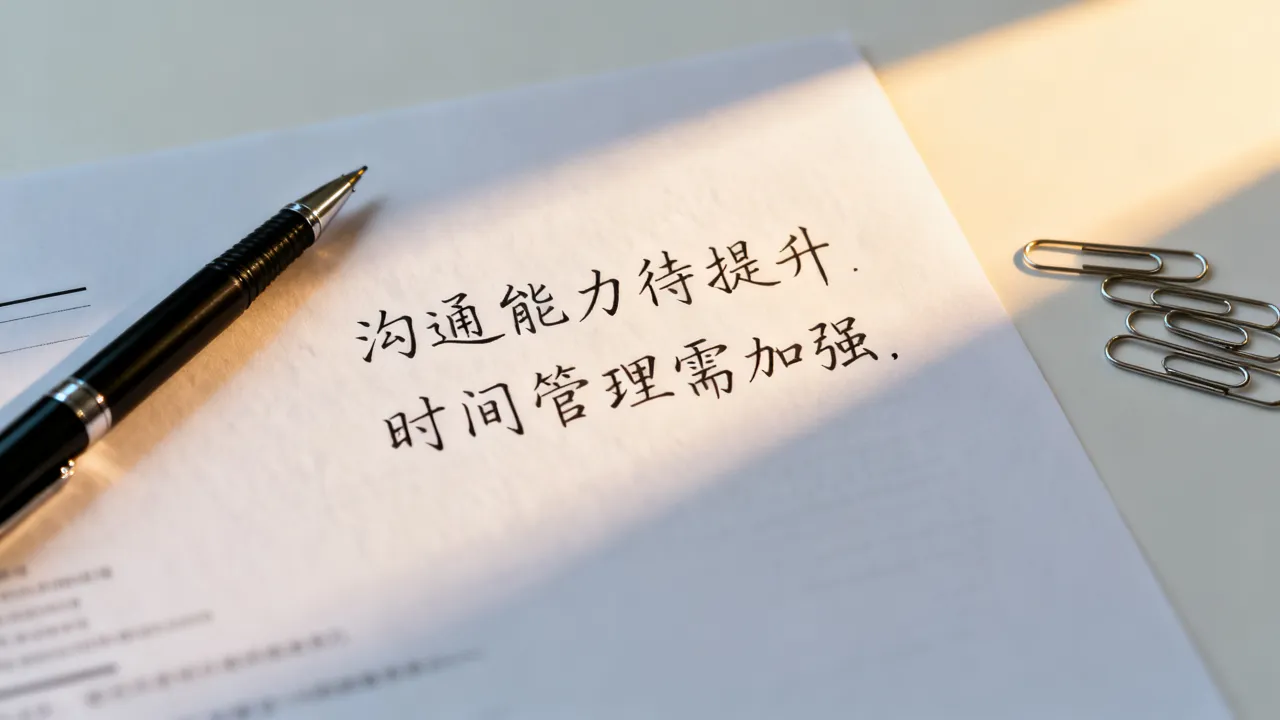 沟通能力待提升.
时间管理需加强.